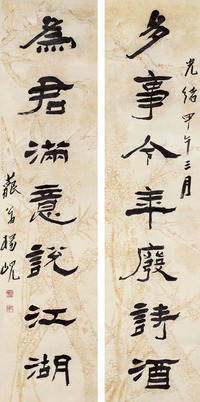 光緒甲午三月
多事今年廢詩酒
為君滿意說江湖
藐翁楊峴